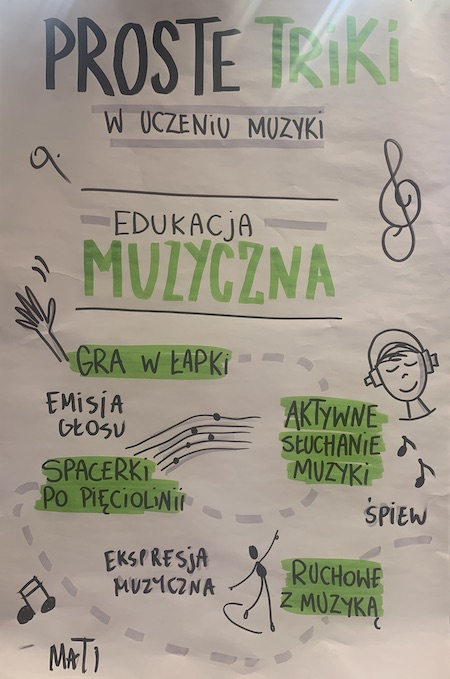 PROSTE TRIKI
W UCZENIU MUZYKI
EDUKACJA
MUZYCZNA
GRA W ŁAPKI
EMISJA
GŁOSU
AKTYWNE
SŁUCHANIE
MUZYKI
SPACERKI
PO PIĘCIOLINII
ŚPIEW
EKSPRESJA
MUZYCZNA
RUCHOWE
Z MUZYKĄ
MATI